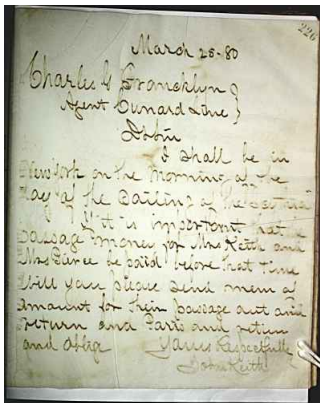 226
March 25-80
Charles G Francklyn
Agent Cunard Line
D Sir
I shall be in
New York on the morning of the
day of the Sailing of the
If it is important that
passage money for Mrs Keith and
Mrs Pierce be paid before that time
Will you please send mem of
amount for their passage out and
return and Paris and return
and oblige Yours Respectfully
John Keith